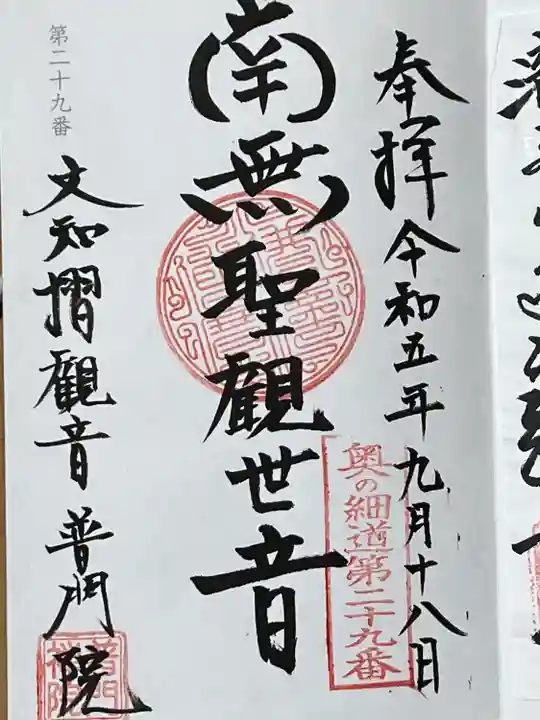 奉拝 令和五年九月十八日
奥の細道第二十九番
南無聖観世音
第二十九番
文知摺観音 普門院